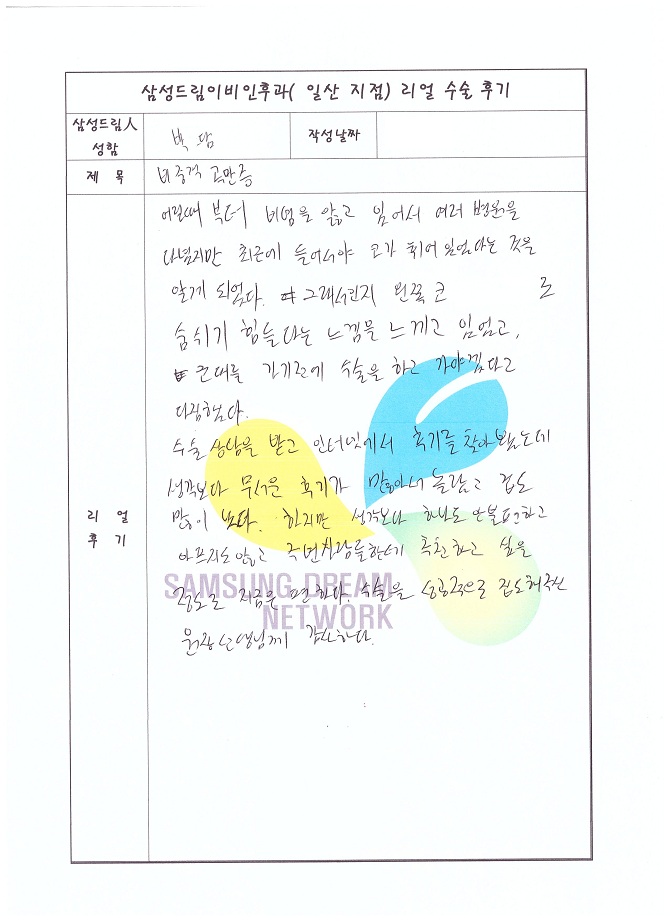 삼성드림이비인후과( 일산 지점) 리얼 수술 후기
삼성드림人 성함 박담 작성날짜
제 목 비중격 교만증
리 얼 후 기
어릴때 부터 비염을 앓고 있어서 여러 병원을
다녔지만 최근에 들어서야 코가 휘어 있었다는 것을
알게 되었다. 그래서인지 왼쪽 코 로
숨쉬기 힘들다는 느낌을 느끼고 있었고,
군대를 가기전에 수술을 하고 가야겠다고
다짐했다.
수술 상담을 받고 인터넷에서 후기를 찾아봤는데
생각보다 무서운 후기가 많아서 놀랐고 겁도
많이 났다. 하지만 생각보다 하나도 안불편하고
아프지도 않고 주변사람들한테 추천하고 싶을
정도로 지금은 편하다. 수술을 성공적으로 집도해주신
원장선생님께 감사하다.
SAMSUNG DREAM
NETWORK